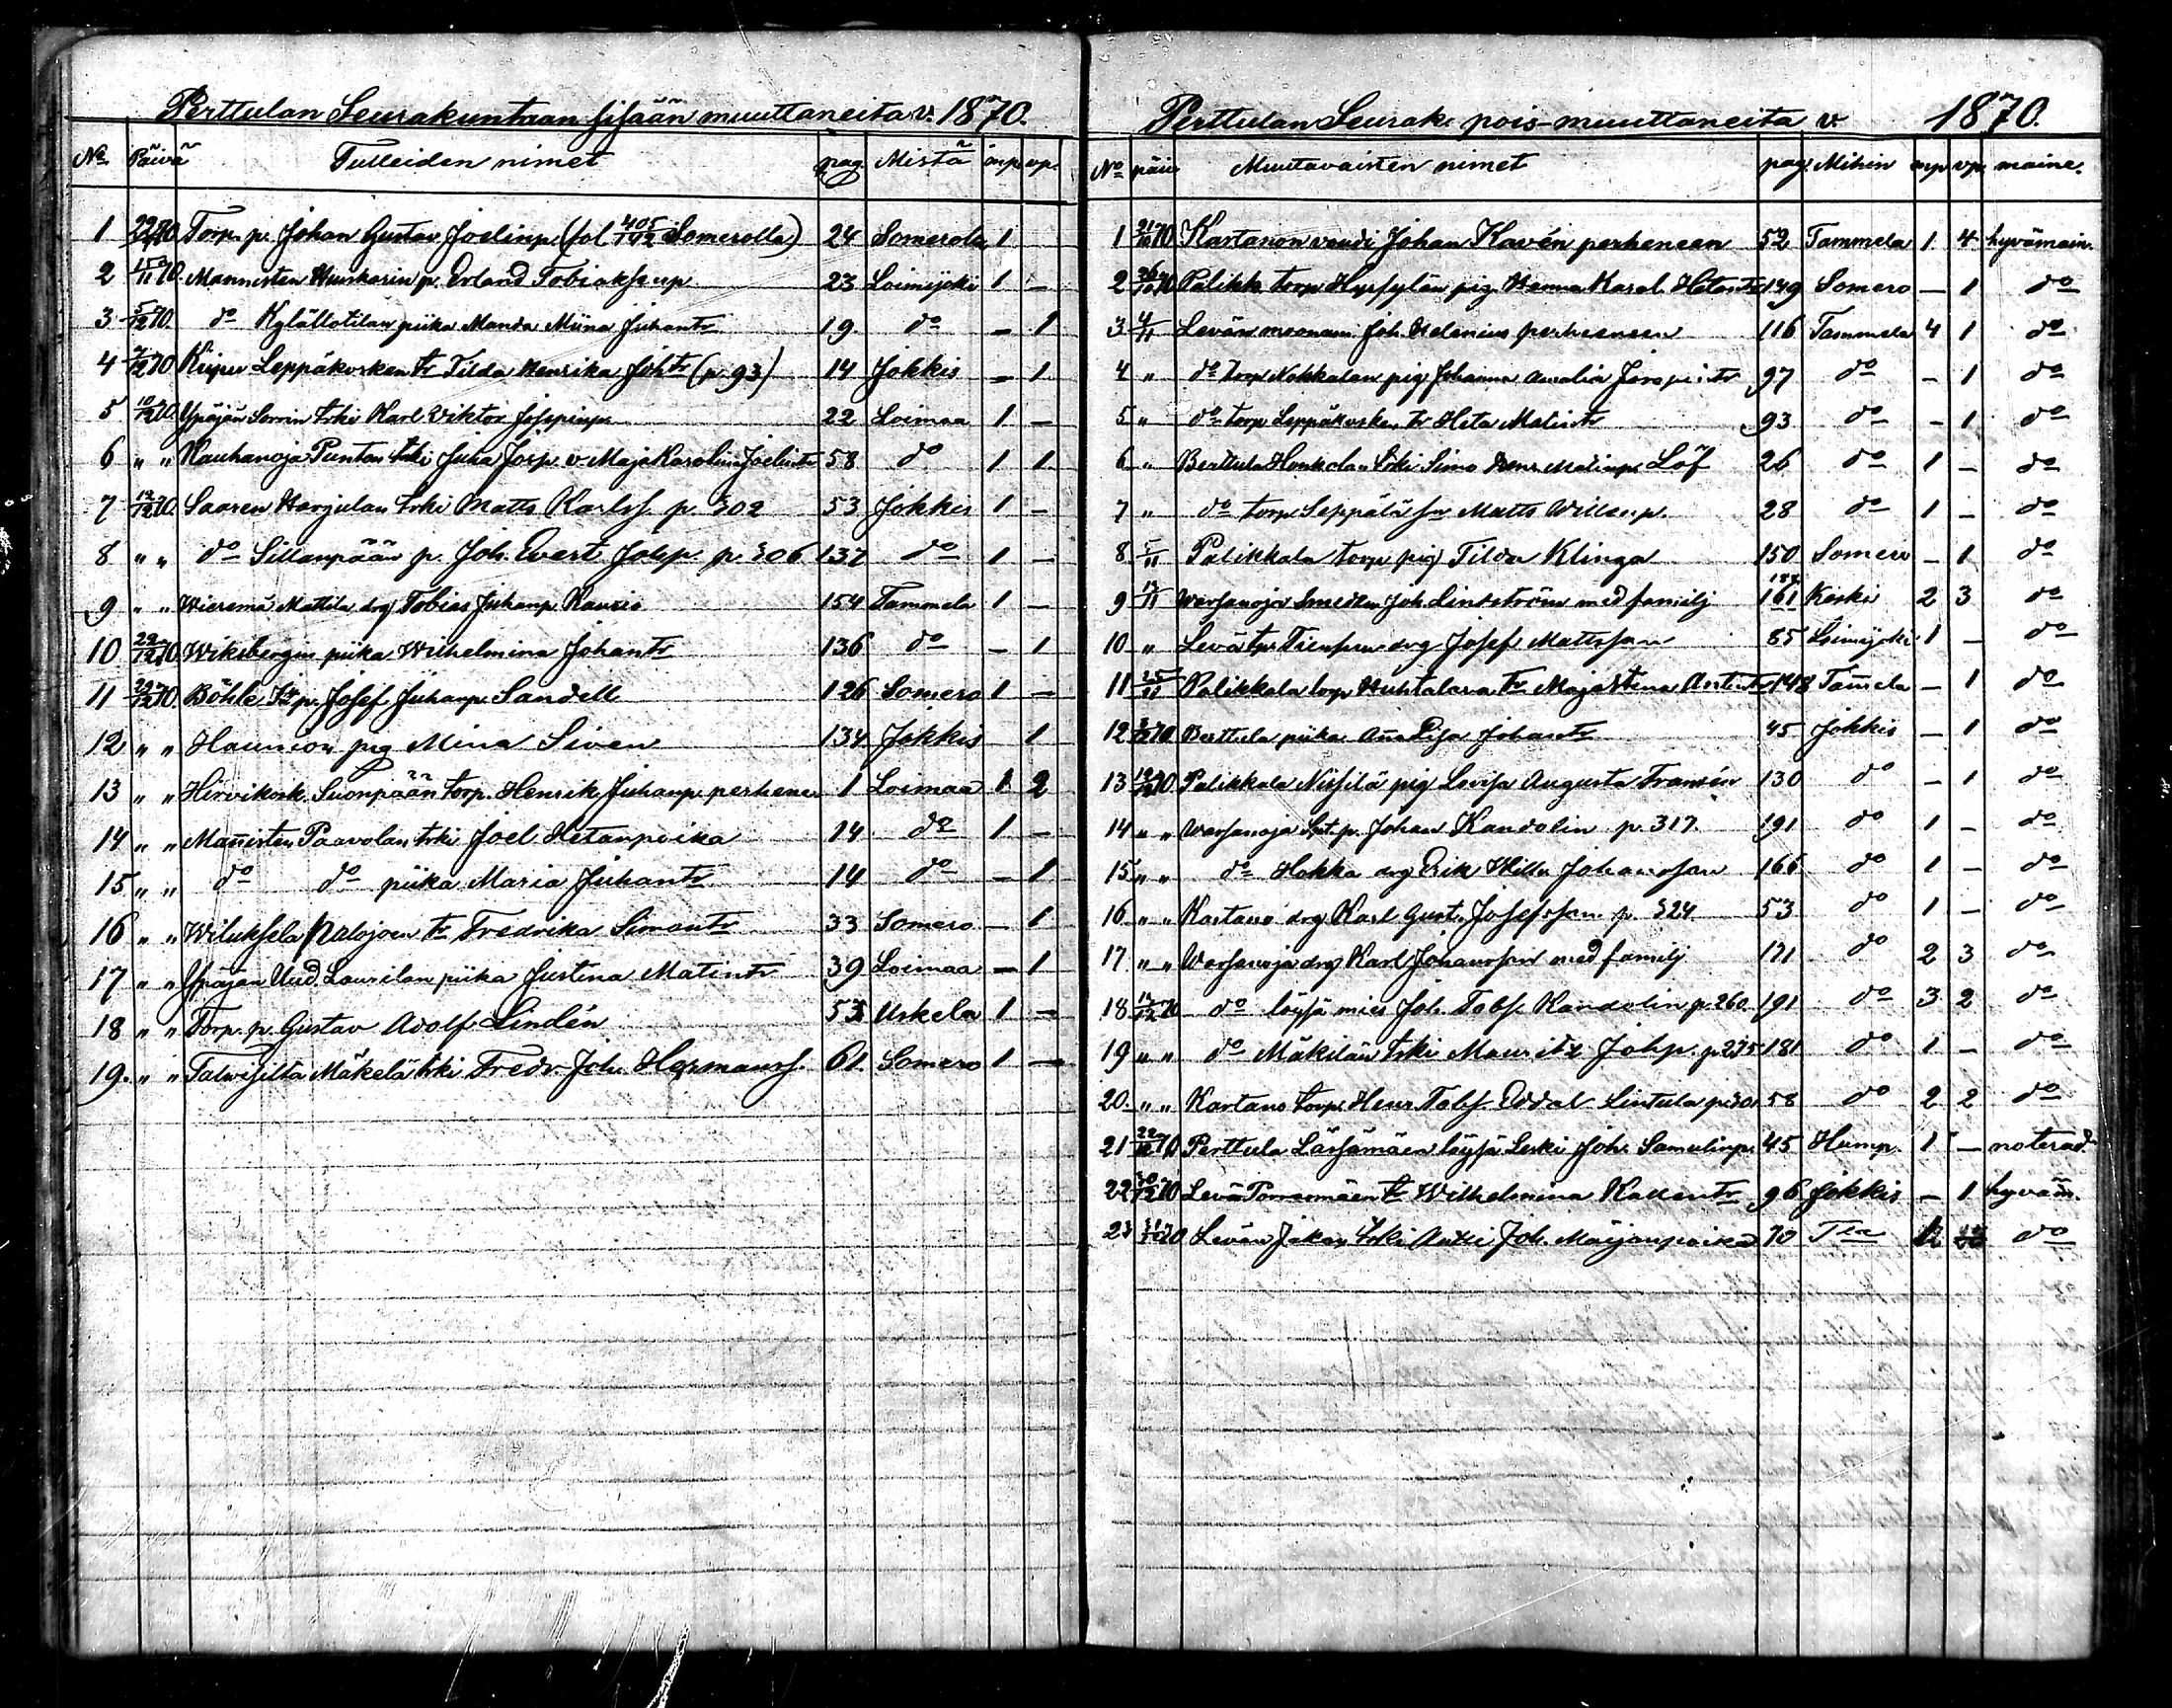 Perttulan Seurakuntaan sisään muuttaneita v. 1870.
No Päivä Tulleiden nimet pag. Mistä mp. vp.
1 70 Torp. p. Johan Gustav Joelinp. (fol 405/142 Somerolla) 24 Somerola 1
2 15/11 70. Mannisten Huskarin p. Erland Tobiaksenp 23 Loimijoki 1 —
3 5/12 70. do Kylällotilan piika Manda Miina Juhantr 19. do — 1
4 7/12 70 Leppäkosken tr Tilda Henrika Johtr (p. 93) 14 Jokkis — 1
5 10/12 70. Ypäjän Sorrin trki Karl Viktor 22 Loimaa 1 —
6 " " Kauhanoja Puntan trki Juha Josp. v. Maja Karoliina Joelintr 58 do 1 1
7 12/12 70. Saaren Harjulan trki Matts Karlss. p. 302 53 Jokkis 1 —
8 " " do Sillanpään p. Joh. Evert Johp. p. 306 137 do 1 —
9 " " Mattila drg Tobias Juhanp. 154 Tammela 1 —
10 22/12 70 Wiksbergin piika Wilhelmina Johantr 136 do — 1
11 29/12 70 Böhle p. Josef Juhanp. Sandell 126 Somero 1 —
12 " " Haunion pig Mina Siven 134 Jokkis 1
13 " " Hirvikosk. Suonpään torp. Henrik Juhanp. perhene 1 Loimaa 1 2
14 " " Man̄isten Paavolan trki Joel Hetanpoika 14 do 1 —
15 " " do do piika Maria Juhantr 14 do — 1
16 " " Wiluksela Palojoen tr Fredrika Simontr 33 Somero — 1
17 " " Ypäjän Uud. Laurilan piika Justina Matintr 39 Loimaa — 1
18 " " Torp. p. Gustav Adolf Lindén 53 Uskela 1 —
19. " " Talwisilta Mäkelä trki Fredr. Joh. Hermanss. 61. Somero 1 —
Perttulan Seurak. pois-muuttaneita v. 1870.
No päiv Muuttavaisten nimet pag. Mihin mp vp. maine.
1 21/10 70 Kartanon voudi Johan Kavén perheneen 52 Tammela 1 4 hyvämain.
2 26/10 70 Palikk. torp pig. Hanna Karol. Hetantr 149 Somero — 1 do
3 4/11 Levän moonam. Joh. Helenius perheeneen 116 Tammela 4 1 do
4 " do torp Nokkalan pig Johanna Amalia 97 do — 1 do
5 " do torp Leppäkosken tr Heta Matintr 93 do — 1 do
6 " Berttula Honkolan trki Simo Henr. Matinp. Löf 26 do 1 — do
7 " do torp. Seppälä sn Matts Willen p. 28 do 1 — do
8 5/11 Palikkala torp pig Tilda Klinga 150 Somero — 1 do
9 Warsanoja Smeden Joh. Lindström med familj 161 Koski 2 3 do
10 " Levä drg Josef Mattsson 85 Loimijoki 1 — do
11 25/11 Palikkala torp Huhtalasa tr Maja Stina Anttintr 148 Tam̄ela — 1 do
12 70 Berttula piika An̄a Lisa Johantr 45 Jokkis — 1 do
13 70 Palikkala Nissilä pig Lovisa Augusta Fransén 130 do — 1 do
14 " " Warsanoja p. Johan Kandolin p. 317. 191 do 1 — do
15 " " do Hakka drg Erik Wilh. Johansson 166 do 1 — do
16 " " Kartano drg Karl Gust. Josefsson p. 324 53 do 1 — do
17 " " Warsanoja drg Karl Johansson med familj 171 do 2 3 do
18 14/12 70 do löysä mies Joh. Tobs. Kandolin p. 260. 191 do 3 2 do
19 " " do Mäkilän trki Mauritz Johp. p. 275 181 do 1 — do
20. " " Kartano torp. Henr. Tobs. Lintula p. 301 58 do 2 2 do
21 22/12 70 Perttula Lässämäen löysä Leski Joh. Samulinp. 45 Hump. 1 — noterad.
22 30/12 70 Levä Porrasmäen tr Wilhelmina Kallentr 96 Jokkis — 1 hyväm.
23 31/12 70 Levän trki Antti Joh. Maijanpoika 70 Tla do